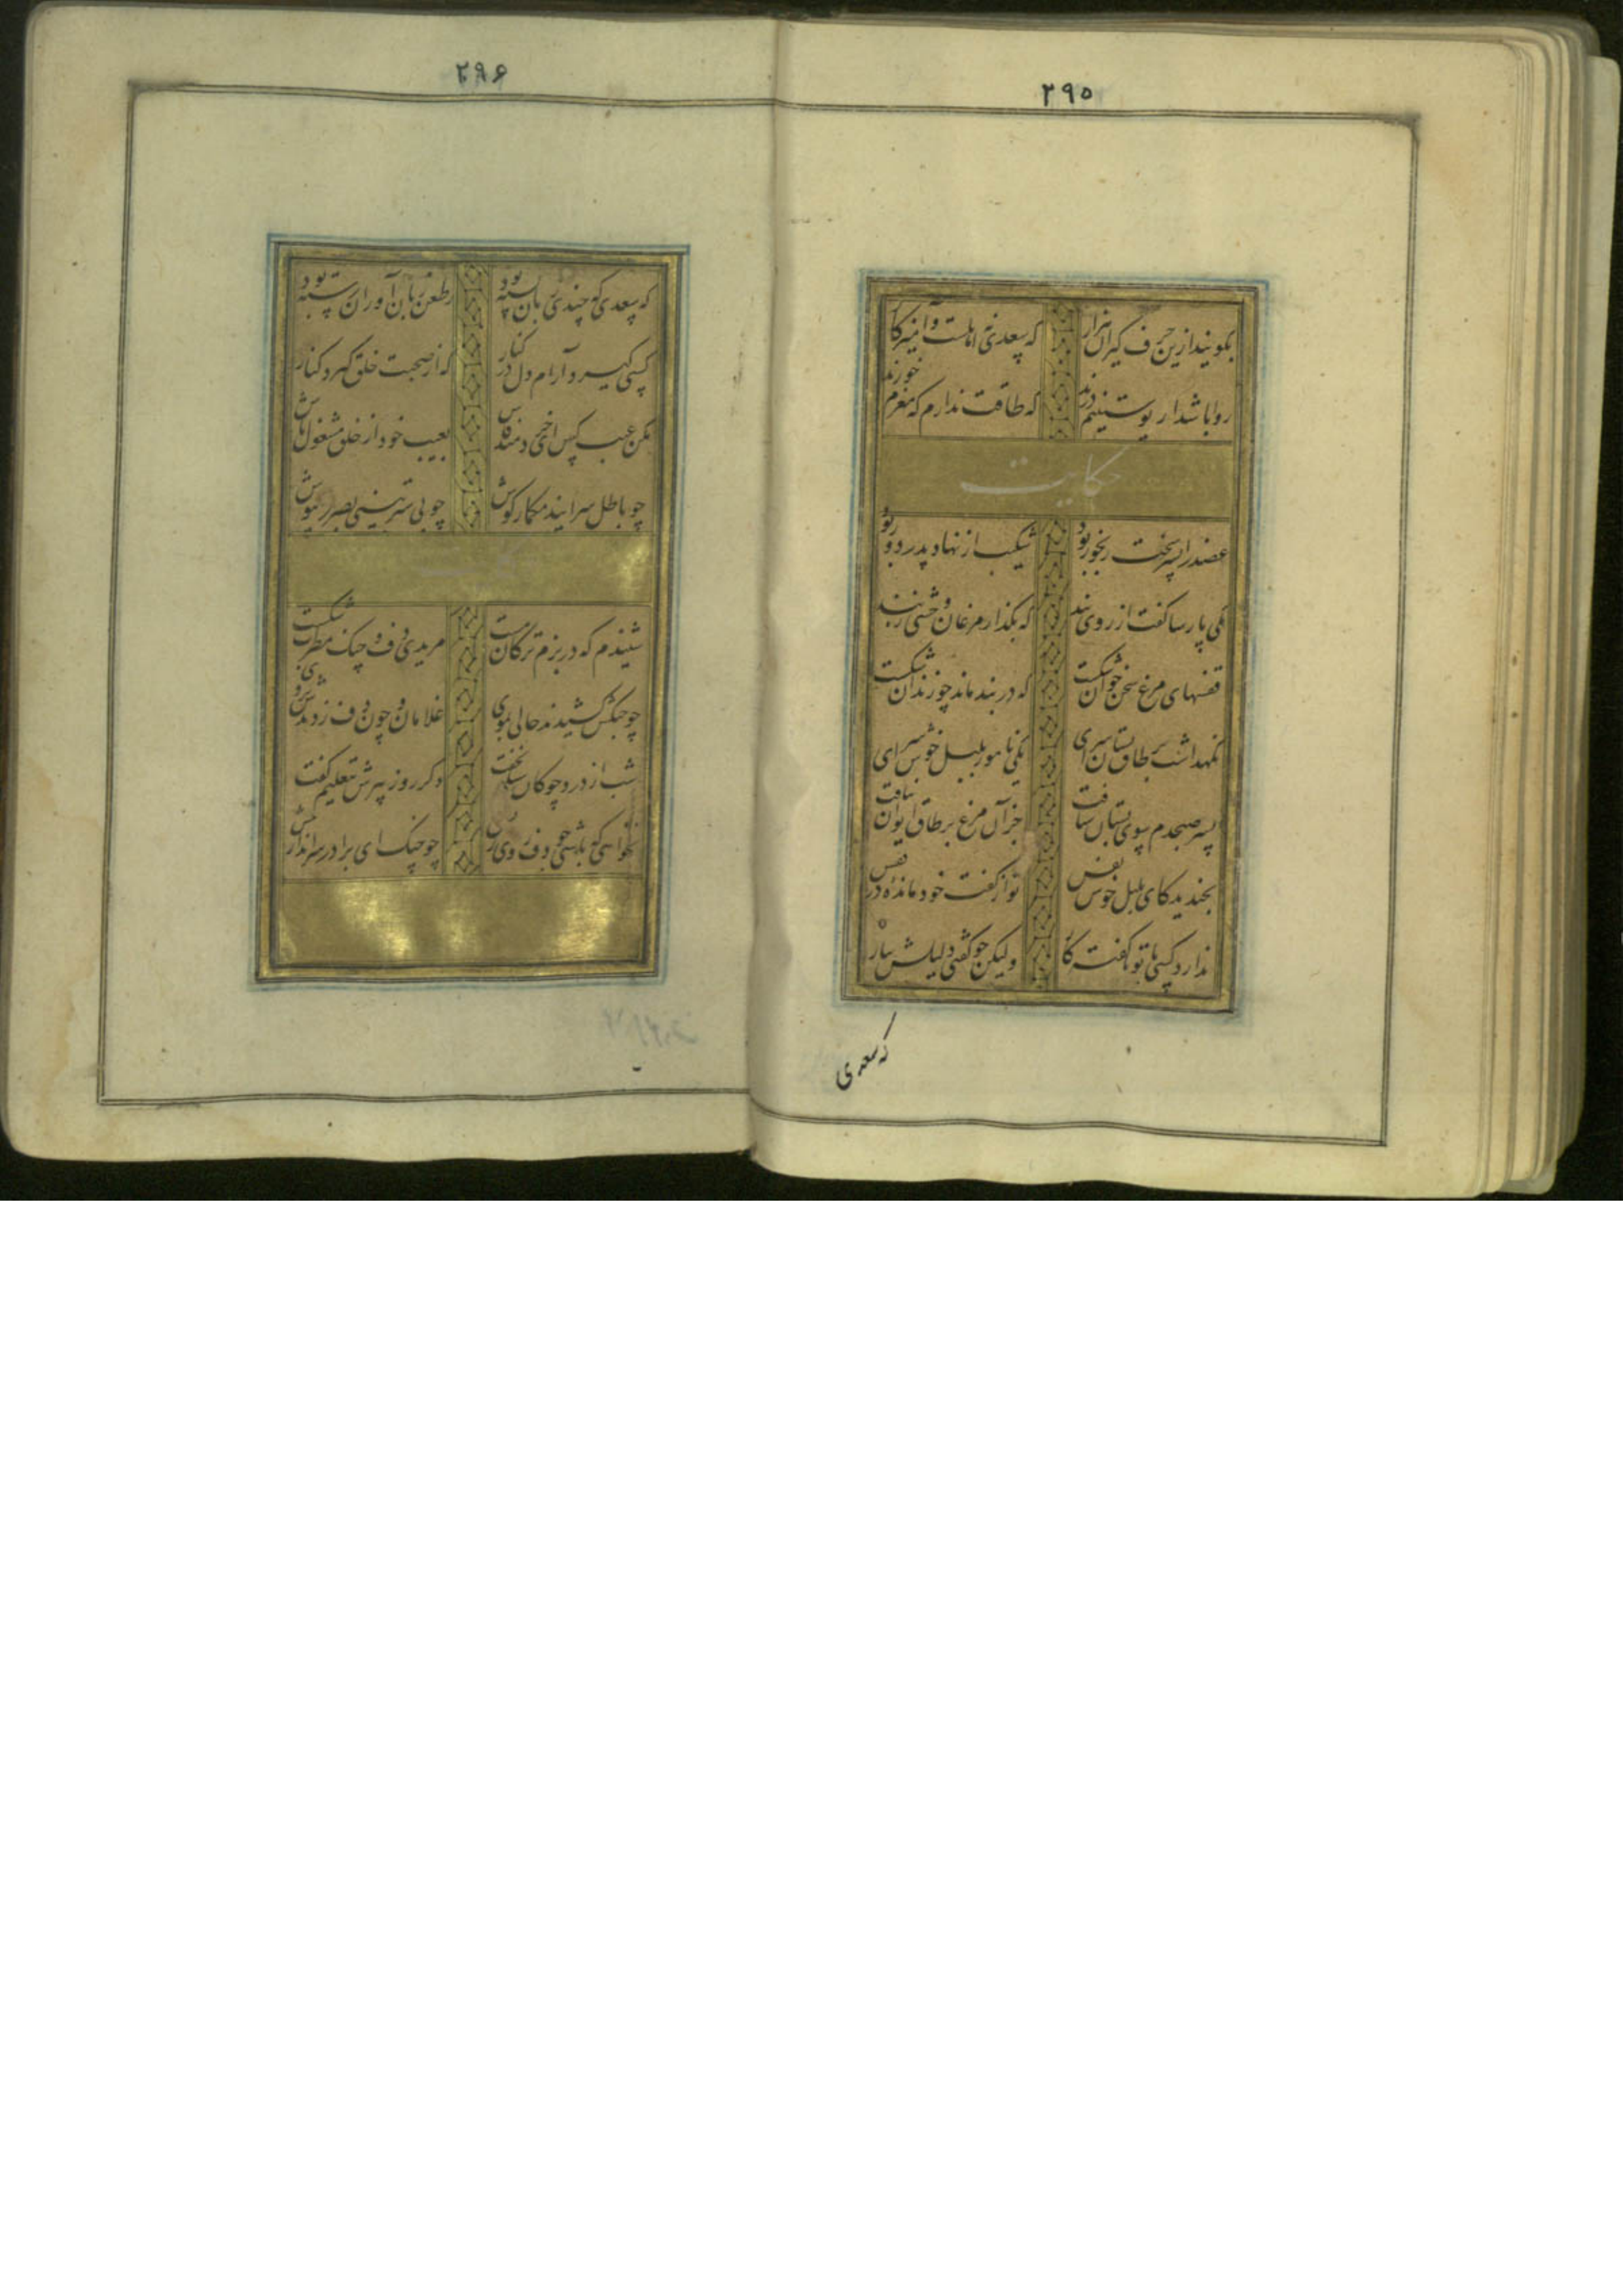 ۲۹۵
بگویند ازین حرف گیران هزار که سعدی نه اهلست و آمیزگار
روا باشد ار پوستینم درند که طاقت ندارم که مغزم خورند
حکایت
عضد را پسر سخت رنجور بود شکیب از نهاد پدر دور بود
یکی پارسا گفت از روی پند که بگذار مرغان وحشی ز بند
قفسهای مرغ سخن خوان شکست که در بند ماند چو زندان شکست
نگهداشت بر طاق بستان سرای یکی نامور بلبل خوش سرای
پسر صبحدم سوی بستان شتافت جز آن مرغ بر طاق ایوان نیافت
بخندید کای بلبل خوش نفس تو از گفت خود مانده در قفس
ندارد کسی با تو ناگفته کار ولیکن چو گفتی دلیلش بیار
که سعدی
۲۹۶
که سعدی که چندی زبان بسته بود ز طعن زبان آوران رسته بود
کسی گیرد آرام دل در کنار که از صحبت خلق گیرد کنار
مکن عیب کس ای خردمند فاش بعیب خود از خلق مشغول باش
چو باطل سرایند مگمار گوش چو بی ستر بینی بصیرت بپوش
شنیدم که در بزم ترکان مست مریدی دف و چنگ مطرب شکست
چو چنگش کشیدند حالی بموی غلامان و چون دف زدندش بروی
شب از درد چوگان نخفت دگر روز پیرش بتعلیم گفت
نخواهی که باشی چو دف روی ریش چو چنگ ای برادر سرانداز پیش